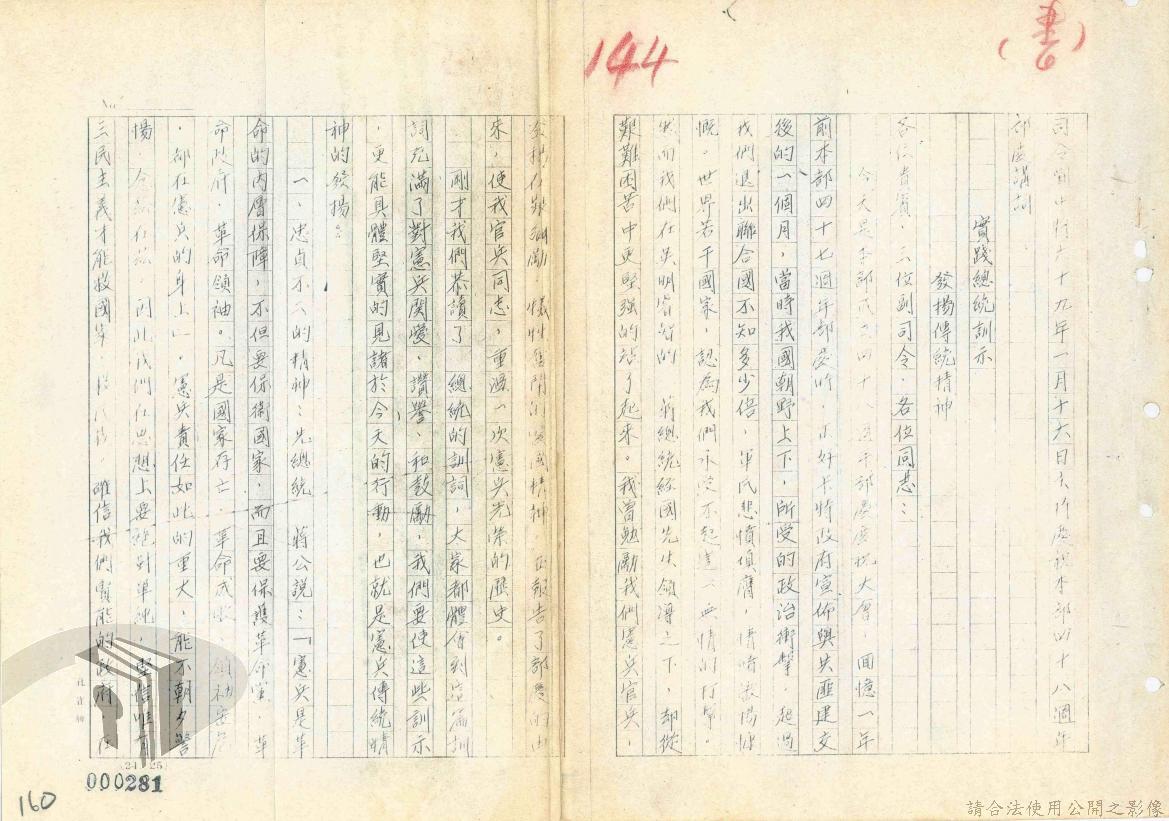 144
(書6)
司令劉中將六十九年一月十六日在慶祝本部四十八週年
部慶講詞
實踐總統訓示
發揚傳統精神
各位貴賓,三位副司令,各位同志:
今天是本部成立四十八週年部慶慶祝大會 回憶一年
前本部四十七週年部慶時,正好卡特政府宣佈與共匪建交
後的一個月,當時我國朝野上下,所受的政治衝擊,超過
我們退出聯合國不知多少倍,軍民悲憤填膺,
慨,世界若干國家,認為我們承受不起這一無情的打擊。
然而我們在英明睿智的 蔣總統經國先生領導之下,却從
艱難困苦中更堅強的站了起來。我曾勉勵我們憲兵官兵,
發揚 犧牲奮鬥的愛國精神,並報告了部慶的由
來,使我官兵同志,重溫一次憲兵光榮的歷史。
剛才我們恭讀了 總統的訓詞,大家都體會到這篇訓
詞充滿了對憲兵關愛、讚譽、和鼓勵,我們要使這些訓示
,更能具體堅實的見諸於今天的行動,也就是憲兵傳統精
神的發揚:
一、忠貞不二的精神:先總統 蔣公說:「憲兵是革
命的內層保障,不但要保衛國家,而且要保護革命黨,革
命政府,革命領袖。凡是國家存亡,革命成敗,領袖安危
,都在憲兵的身上」,憲兵責任如此的重大,能不朝夕警
惕,念茲在茲,因此我們在思想上要絕對單純,堅信唯有
三民主義才能救國家, 確信我們賢能的政府 在
(24×25)
000281
160
請合法使用公開之影像